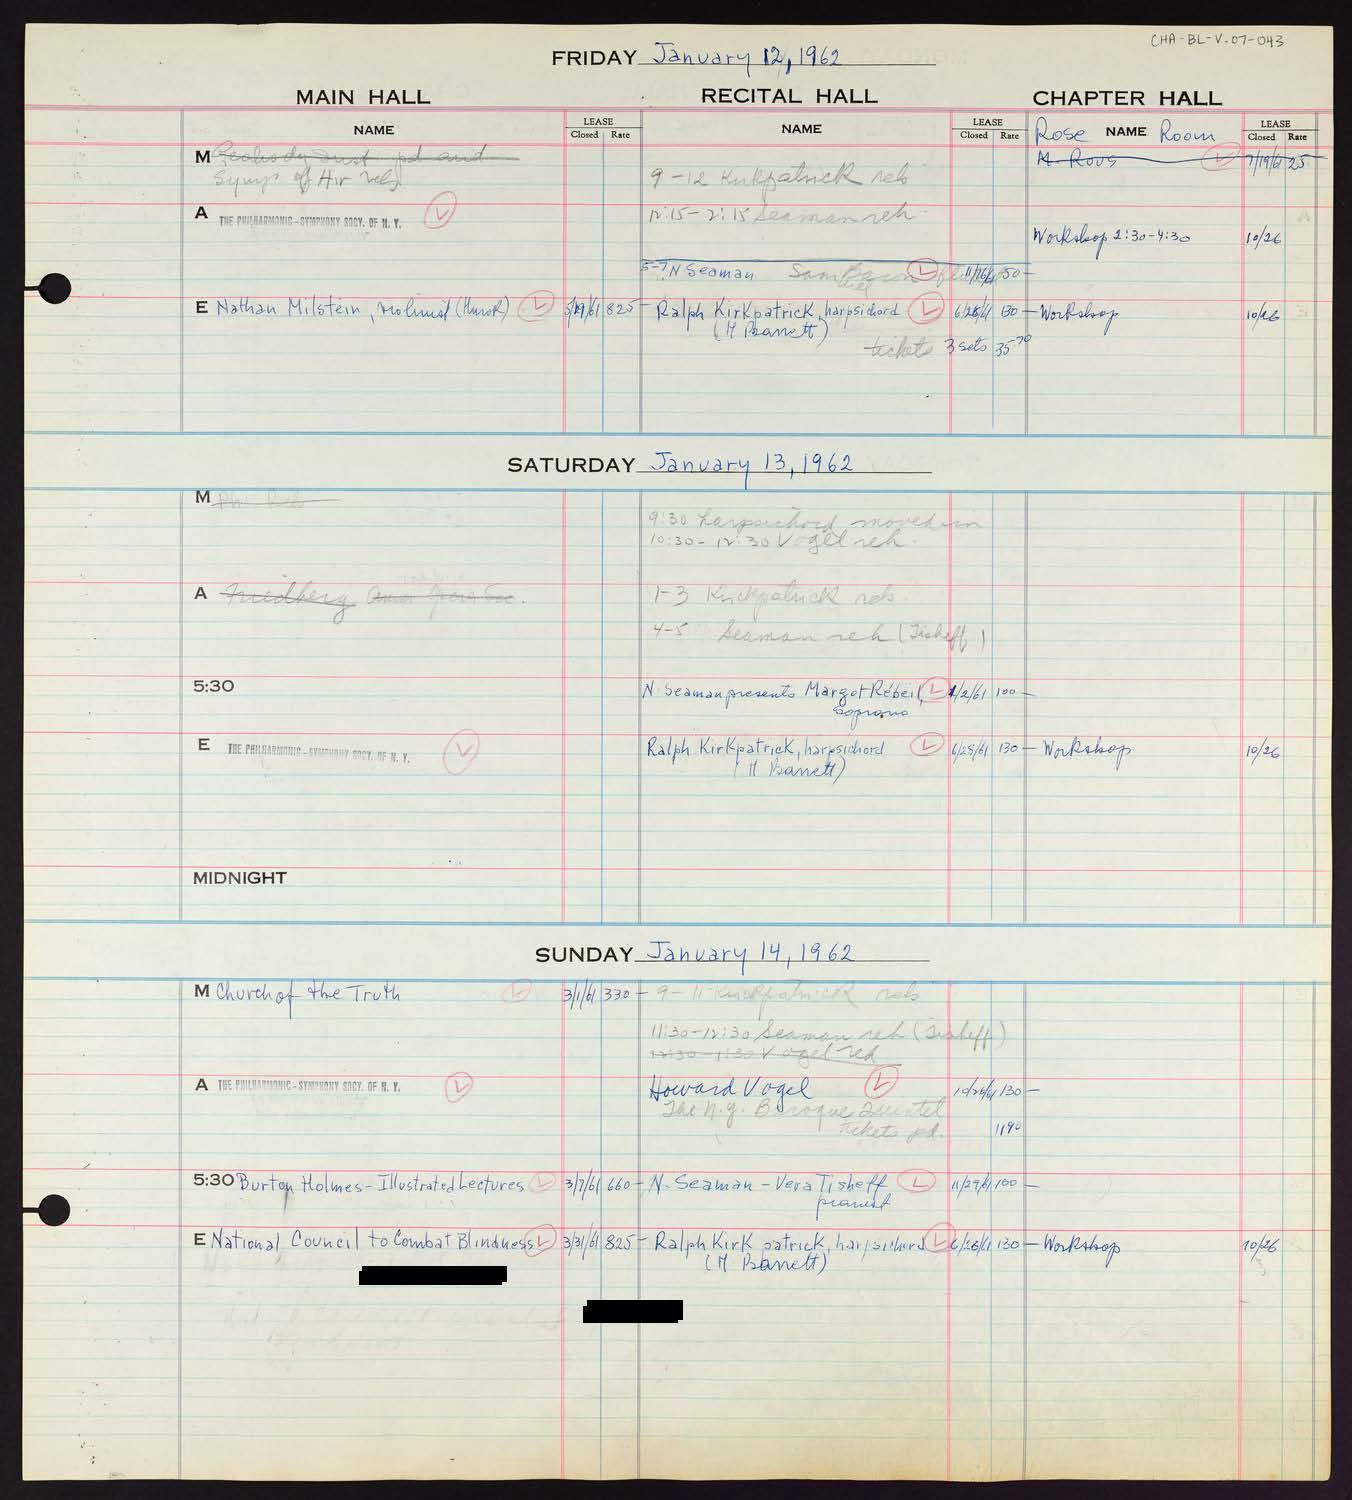 CHA-BL-V.07-043
FRIDAY January 12, 1962
MAIN HALL
RECITAL HALL
CHAPTER HALL
NAME
LEASE
Closed Rate
NAME
LEASE
Closed Rate
Rose NAME Room
LEASE
Closed Rate
M Peabody Inst pd and
Symp of Air reh
9-12 Kirkpatrick reh
A. Rous 7/19/61 25
A THE PHILHARMONIC-SYMPHONY SOCY. OF N. Y.
12:15-2:15 Seaman reh.
Workshop 2:30-4:30 10/26
5-7 N Seaman Sam Baron 50-
E Nathan Milstein, violinist (Hurok) 825-
Ralph Kirkpatrick, harpsichord 6/28/61 130-
(M Barrett)
Workshop 10/26
tickets 3 sets 35.70
SATURDAY January 13, 1962
M Ph. Reh
9:30 harpsichord moved in
10:30-12:30 Vogel reh.
A Friedberg Amer Opera Soc.
1-3 Kirkpatrick reh.
4-5 Seaman reh (Tisheff)
5:30
N. Seaman presents Margot Rebeil, 100-
soprano
E THE PHILHARMONIC-SYMPHONY SOCY. OF N. Y.
Ralph Kirkpatrick, harpsichord 6/28/61 130-
(M Barrett)
Workshop 10/26
MIDNIGHT
SUNDAY January 14, 1962
M Church of the Truth 3/1/61 330-
9-11 Kirkpatrick reh
11:30-12:30 Seaman reh (Tisheff)
12:30-1:30 Vogel reh
A THE PHILHARMONIC-SYMPHONY SOCY. OF N. Y.
Howard Vogel 130-
The N.Y. Baroque Quintet
Tickets pd. 1190
5:30 Burton Holmes-Illustrated Lectures 3/7/61 660-
N. Seaman-Vera Tisheff 11/29/61 100-
pianist
E National Council to Combat Blindness 3/31/61 825-
Ralph Kirkpatrick, harpsichord 6/28/61 130-
(M Barrett)
Workshop 10/26